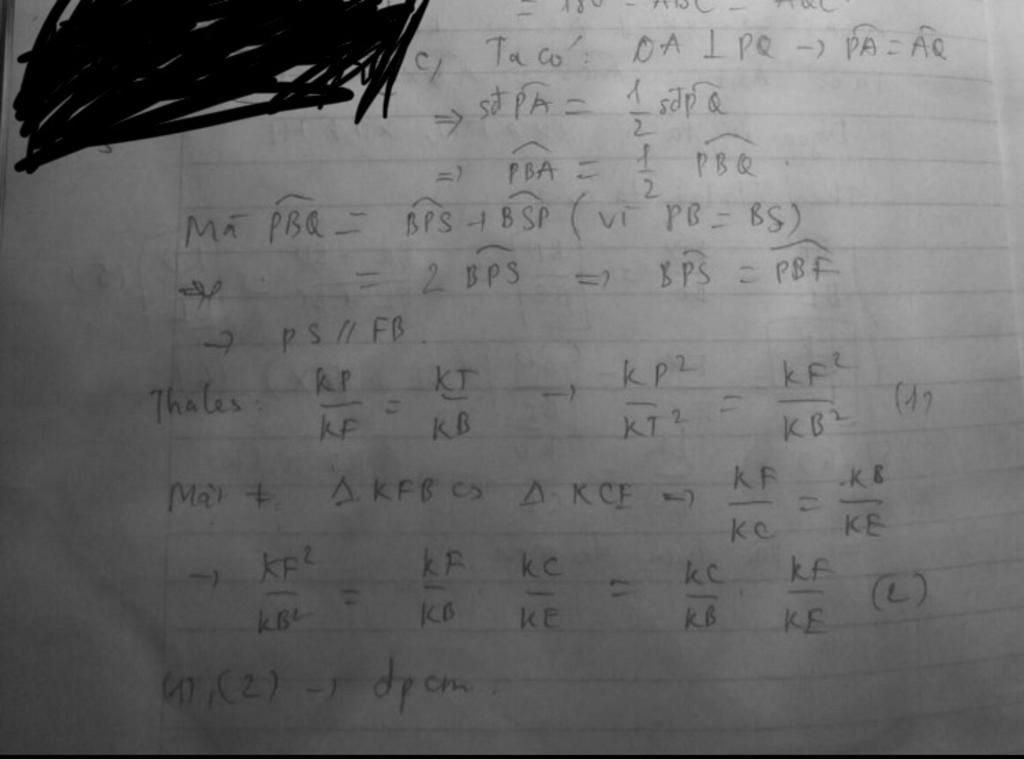 = 180 - ABC = AQC
c, Ta có: OA ⊥ PQ → PA = AQ
⇒ sđ PA = 1/2 sđ PQ
⇒ PBA = 1/2 PBQ.
Mà PBQ = BPS + BSP (vì PB = BS)
= 2 BPS ⇒ BPS = PBF
→ PS // FB.
Thales: KP/KF = KT/KB → KP²/KT² = KF²/KB² (1)
Mặt ≠ Δ KFB ∽ Δ KCE ⇒ KF/KC = KB/KE
→ KF²/KB² = KF/KB . KC/KE = KC/KB . KF/KE (2)
(1), (2) → đpcm.